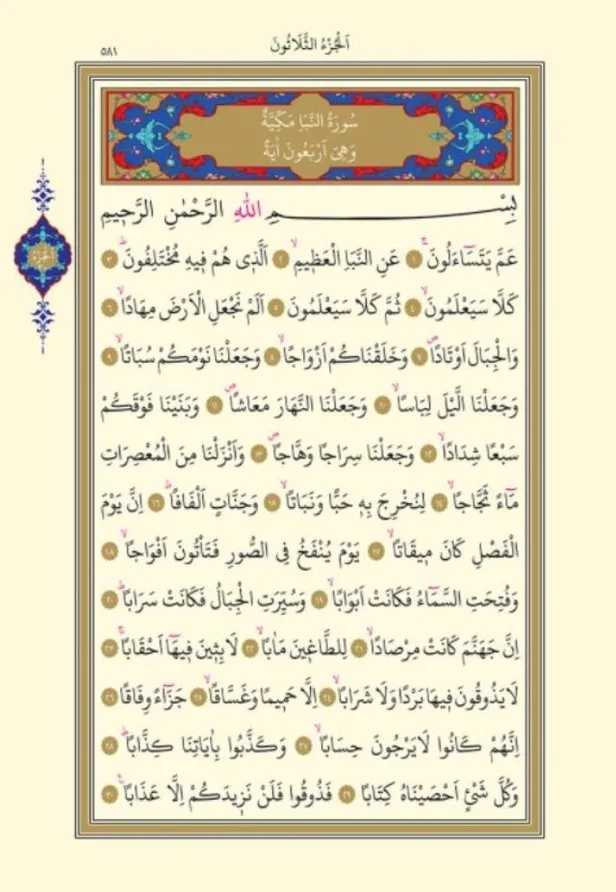 اَلْجُزْءُ الثَّلَاثُونَ
٥٨١
سُورَةُ النَّبَأِ مَكِّيَّةٌ
وَهِيَ اَرْبَعُونَ اٰيَةً
بِسْمِ اللهِ الرَّحْمٰنِ الرَّحٖيمِ
عَمَّ يَتَسَٓاءَلُونَۚ ١ عَنِ النَّبَأِ الْعَظٖيمِۙ ٢ اَلَّذٖى هُمْ فٖيهِ مُخْتَلِفُونَۜ ٣
كَلَّا سَيَعْلَمُونَۙ ٤ ثُمَّ كَلَّا سَيَعْلَمُونَ ٥ اَلَمْ نَجْعَلِ الْاَرْضَ مِهَادًاۙ ٦
وَالْجِبَالَ اَوْتَادًاۖ ٧ وَخَلَقْنَاكُمْ اَزْوَاجًاۙ ٨ وَجَعَلْنَا نَوْمَكُمْ سُبَاتًاۙ ٩
وَجَعَلْنَا الَّيْلَ لِبَاسًاۙ ١٠ وَجَعَلْنَا النَّهَارَ مَعَاشًاۖ ١١ وَبَنَيْنَا فَوْقَكُمْ
سَبْعًا شِدَادًاۙ ١٢ وَجَعَلْنَا سِرَاجًا وَهَّاجًاۖ ١٣ وَاَنْزَلْنَا مِنَ الْمُعْصِرَاتِ
مَٓاءً ثَجَّاجًاۙ ١٤ لِنُخْرِجَ بِهٖ حَبًّا وَنَبَاتًاۙ ١٥ وَجَنَّاتٍ اَلْفَافًاۜ ١٦ اِنَّ يَوْمَ
الْفَصْلِ كَانَ مٖيقَاتًاۙ ١٧ يَوْمَ يُنْفَخُ فِى الصُّورِ فَتَأْتُونَ اَفْوَاجًاۙ ١٨
وَفُتِحَتِ السَّمَٓاءُ فَكَانَتْ اَبْوَابًاۙ ١٩ وَسُيِّرَتِ الْجِبَالُ فَكَانَتْ سَرَابًاۜ ٢٠
اِنَّ جَهَنَّمَ كَانَتْ مِرْصَادًاۙ ٢١ لِلطَّاغٖينَ مَاٰبًاۙ ٢٢ لَابِثٖينَ فٖيهَٓا اَحْقَابًاۚ ٢٣
لَا يَذُوقُونَ فٖيهَا بَرْدًا وَلَا شَرَابًاۙ ٢٤ اِلَّا حَمٖيمًا وَغَسَّاقًاۙ ٢٥ جَزَٓاءً وِفَاقًاۜ ٢٦
اِنَّهُمْ كَانُوا لَا يَرْجُونَ حِسَابًاۙ ٢٧ وَكَذَّبُوا بِاٰيَاتِنَا كِذَّابًاۜ ٢٨
وَكُلَّ شَيْءٍ اَحْصَيْنَاهُ كِتَابًاۙ ٢٩ فَذُوقُوا فَلَنْ نَزٖيدَكُمْ اِلَّا عَذَابًاۚ ٣٠
الجزء